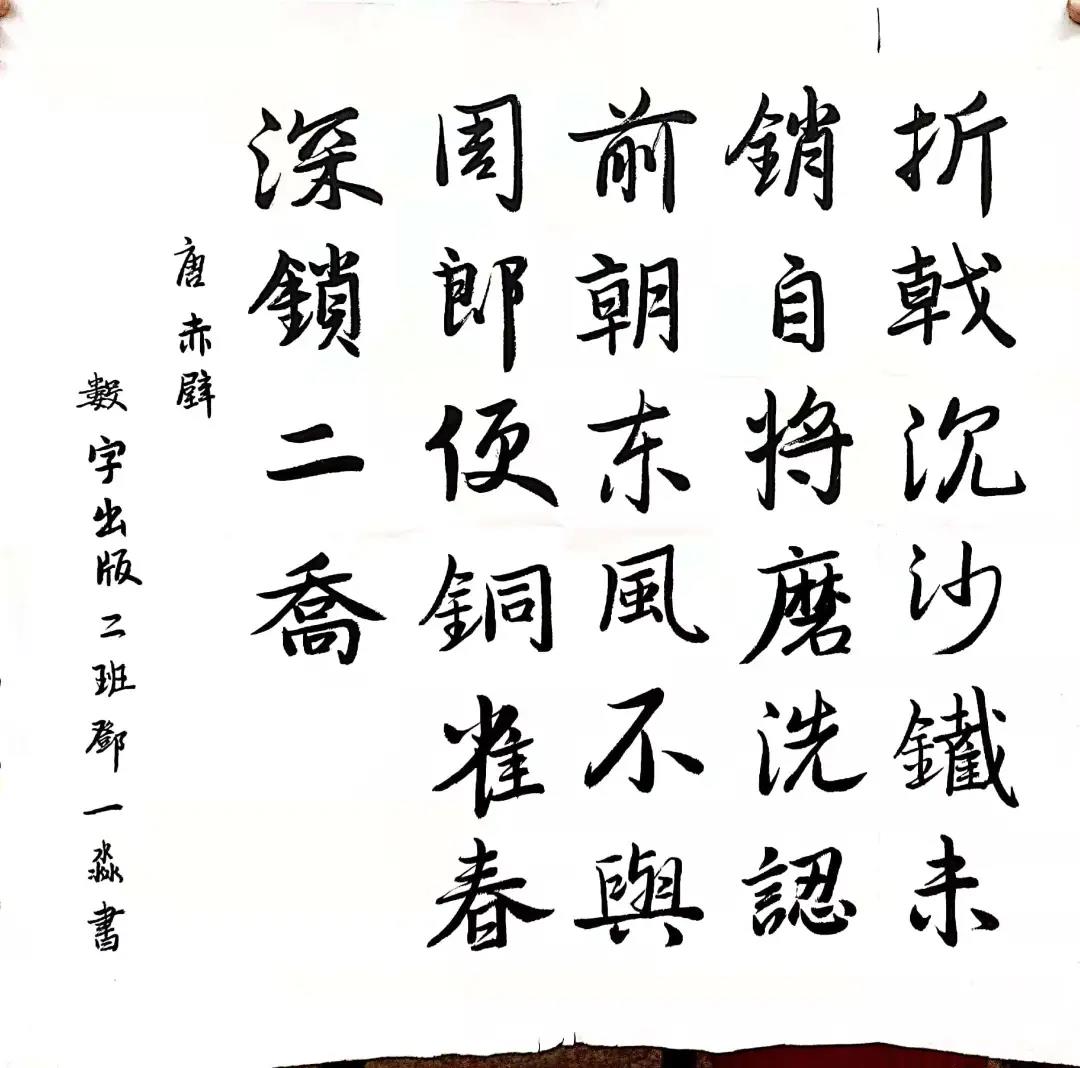 折戟沉沙鐵未
銷自将磨洗認
前朝东風不與
周郎便銅雀春
深鎖二喬
唐赤壁
數字出版二班鄧一淼書